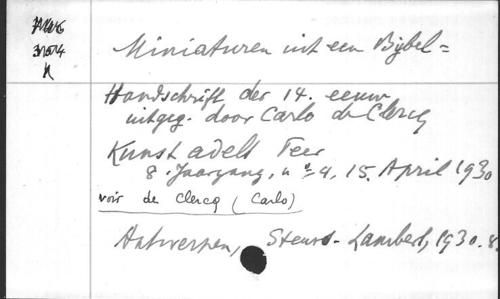 Miniaturen uit een Bijbel=
Handschrift der 14. eeuw
uitgeg. door Carlo de Clercq
Kunst adelt
8. Jaargang, n° 4, 15. April 1930
voir de Clercq (Carlo)
Antwerpen, Lambert, 1930. 8.